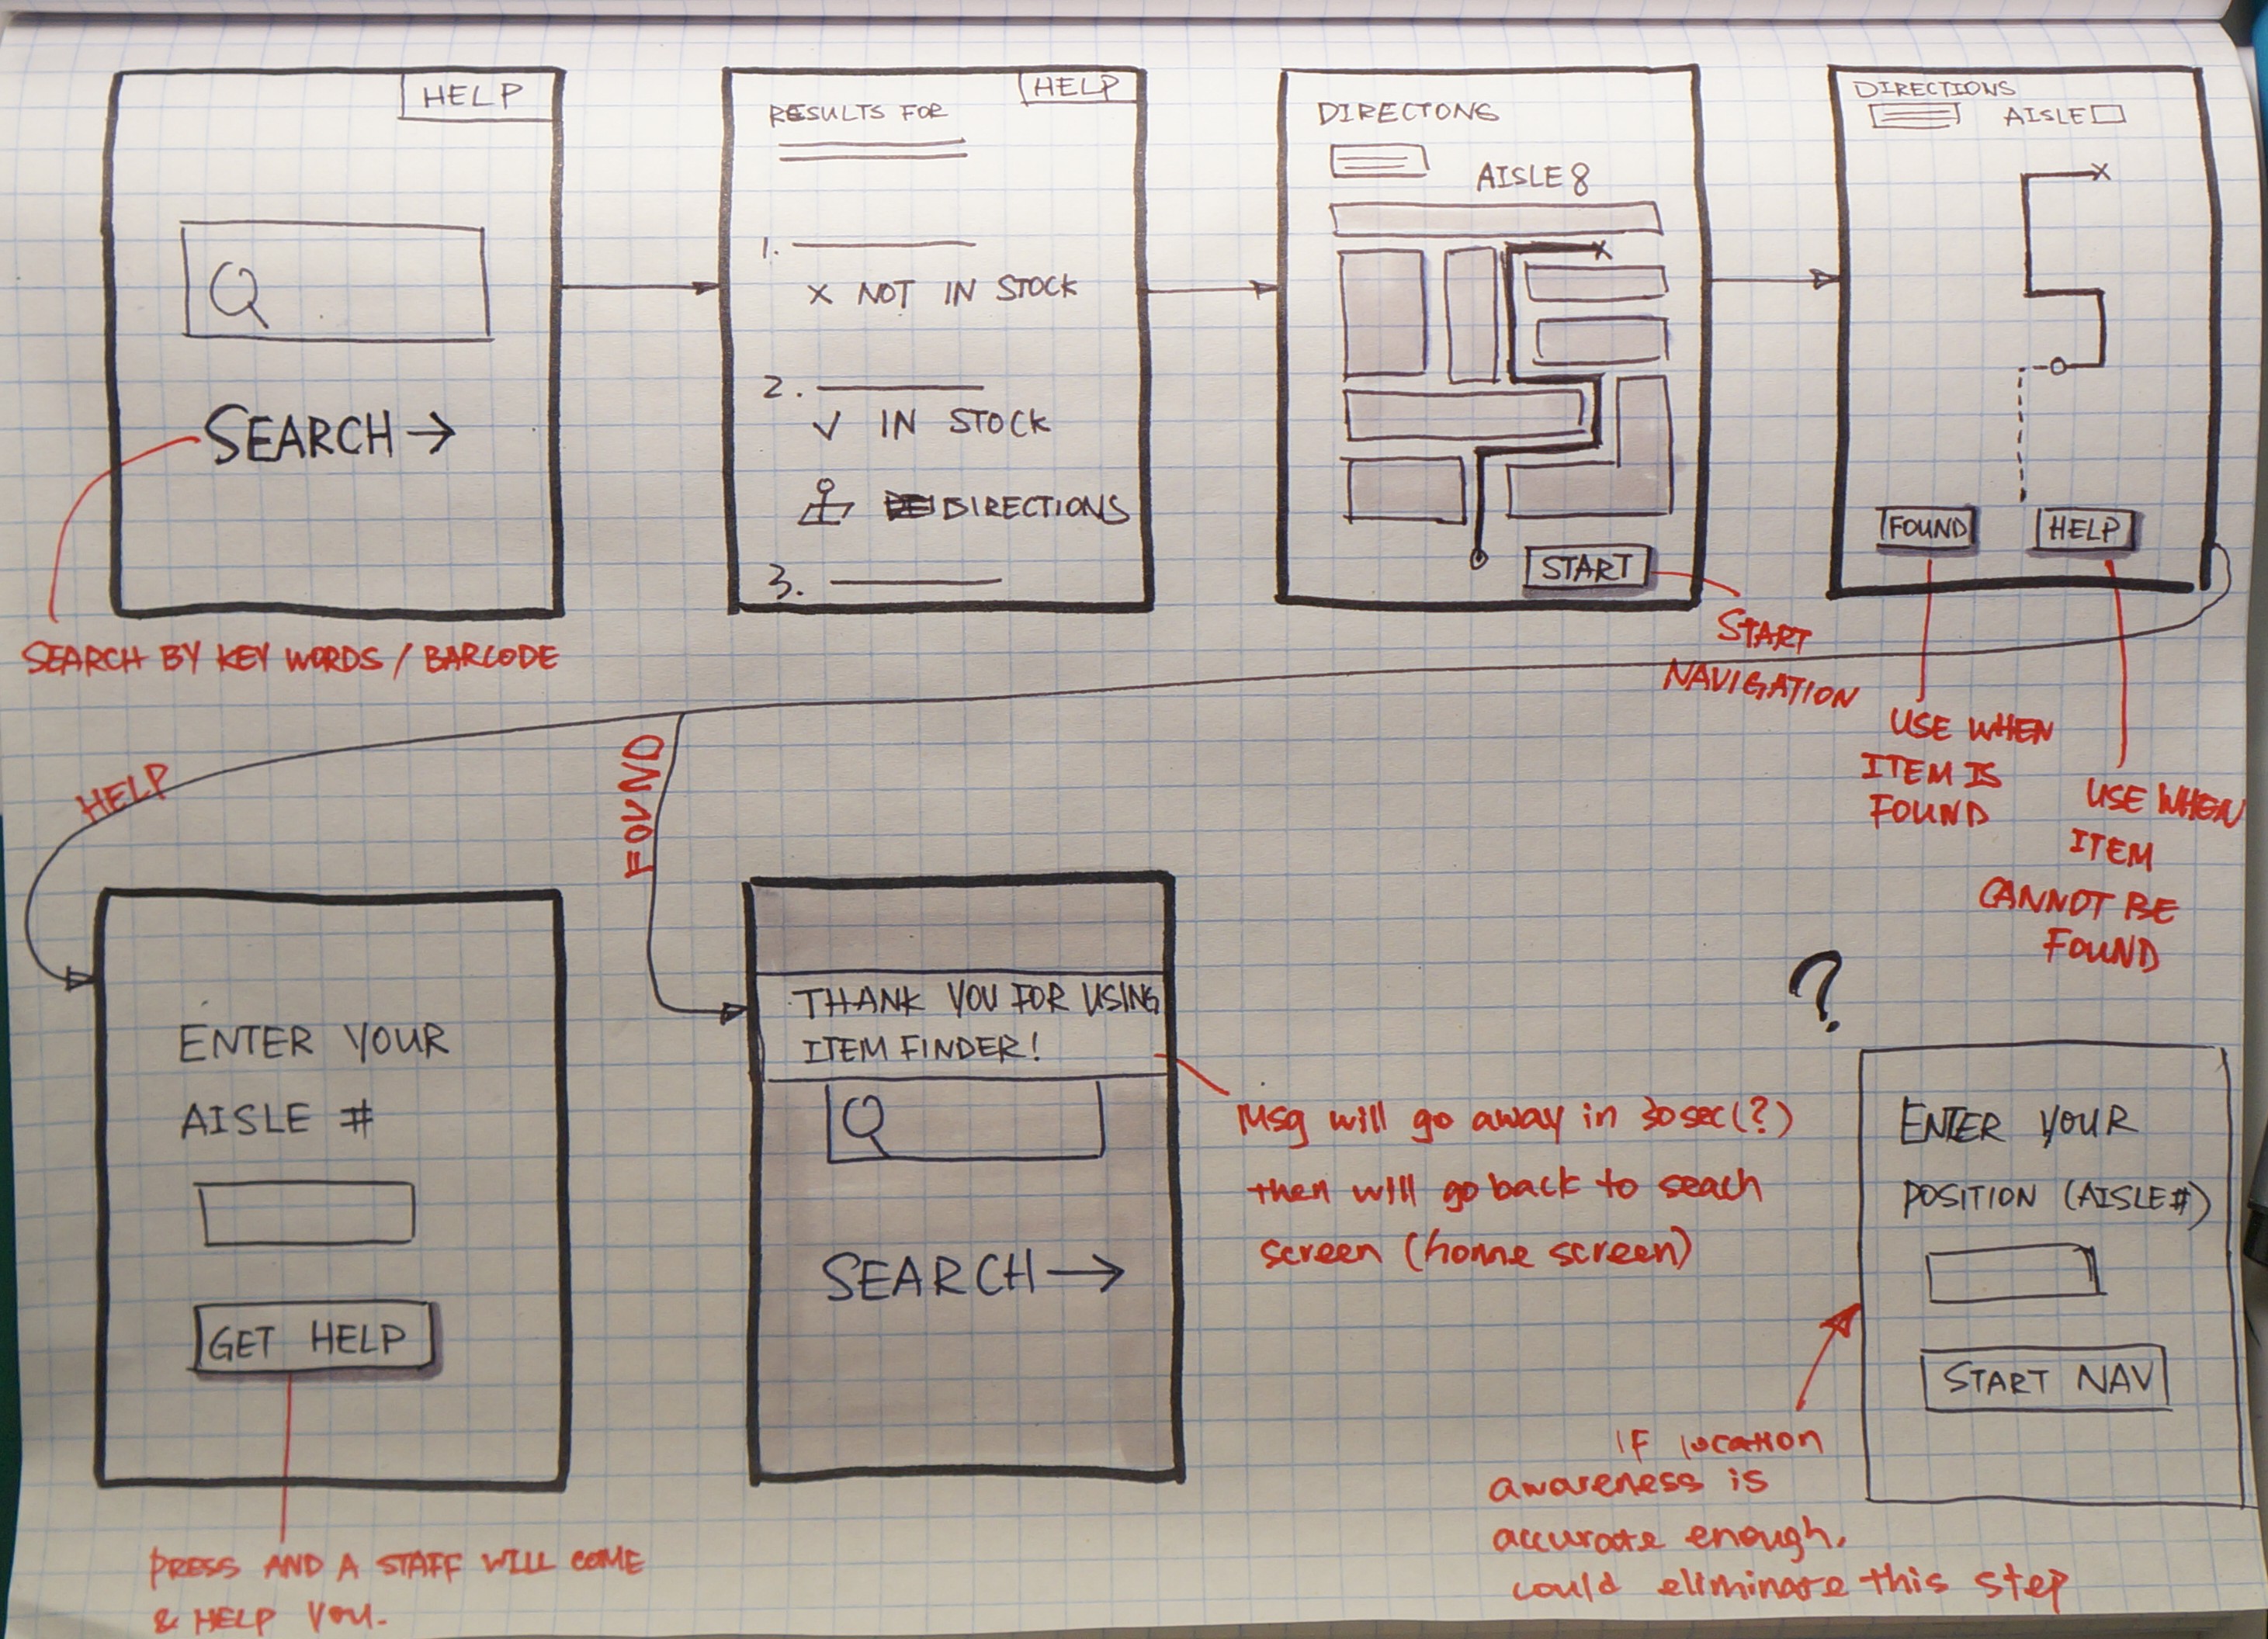 HELP
SEARCH →
SEARCH BY KEY WORDS / BARCODE
HELP
RESULTS FOR
1.
x NOT IN STOCK
2.
✓ IN STOCK
DIRECTIONS
3.
DIRECTONS
AISLE 8
START
START
NAVIGATION
DIRECTIONS
AISLE
FOUND
HELP
USE WHEN
ITEM IS
FOUND
USE WHEN
ITEM
CANNOT BE
FOUND
HELP
FOUND
ENTER YOUR
AISLE #
GET HELP
PRESS AND A STAFF WILL COME
& HELP YOU.
THANK YOU FOR USING
ITEM FINDER!
SEARCH →
Msg will go away in 30 sec (?)
then will go back to seach
screen (home screen)
?
ENTER YOUR
POSITION (AISLE #)
START NAV
IF location
awareness is
accurate enough,
could eliminate this step